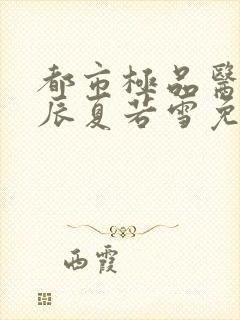 都市極品醫
辰夏若雪免
西霞